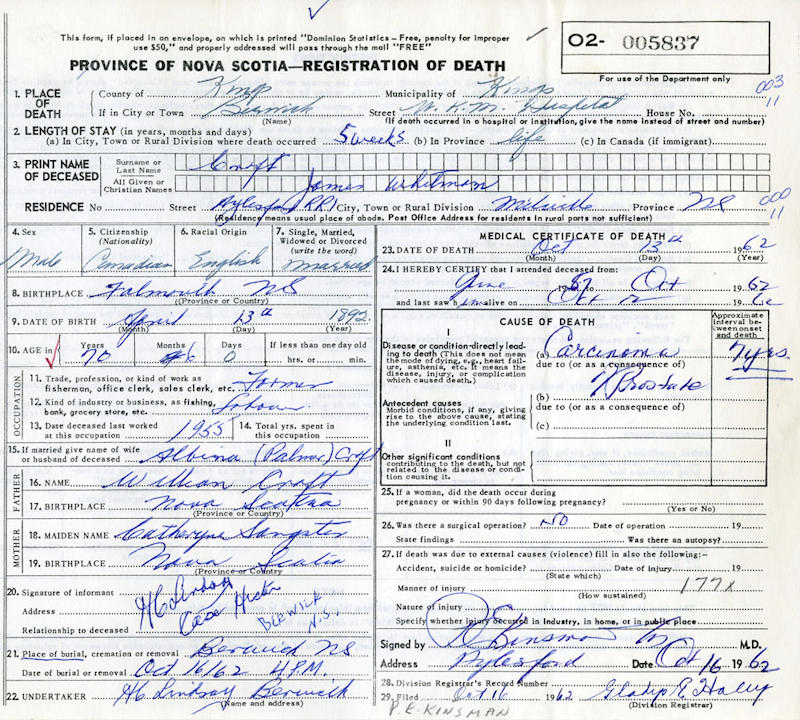 This form, if placed in an envelope, on which is printed "Dominion Statistics – Free, penalty for improper
use $50," and properly addressed will pass through the mail "FREE"
PROVINCE OF NOVA SCOTIA—REGISTRATION OF DEATH
O2- 005837
For use of the Department only
003
11
1. PLACE OF DEATH
County of Kings Municipality of Kings
If in City or Town Berwick Street W.K.M. Hospital House No.
(Name) (If death occurred in a hospital or institution, give the name instead of street and number)
2. LENGTH OF STAY (in years, months and days)
(a) In City, Town or Rural Division where death occurred 5 weeks (b) In Province life (c) In Canada (if immigrant)
3. PRINT NAME OF DECEASED
Surname or Last Name Croft
All Given or Christian Names James Whitman
000
11
RESIDENCE No Street Aylesford RR1 City, Town or Rural Division Melville Province NS
(Residence means usual place of abode. Post Office Address for residents in rural parts not sufficient)
4. Sex 5. Citizenship (Nationality) 6. Racial Origin 7. Single, Married, Widowed or Divorced (write the word)
Male Canadian English Married
8. BIRTHPLACE Falmouth NS
(Province or Country)
9. DATE OF BIRTH April 13th 1892
(Month) (Day) (Year)
10. AGE in Years Months Days If less than one day old
70 6 0 hrs. or min.
OCCUPATION
11. Trade, profession, or kind of work as
fisherman, office clerk, sales clerk, etc. Farmer
12. Kind of industry or business, as fishing,
bank, grocery store, etc.
13. Date deceased last worked
at this occupation 1955
14. Total yrs. spent in
this occupation
15. If married give name of wife
or husband of deceased Albina (Palmer) Croft
FATHER
16. NAME William Croft
17. BIRTHPLACE Nova Scotia
(Province or Country)
MOTHER
18. MAIDEN NAME Catheryne Sangster
19. BIRTHPLACE Nova Scotia
(Province or Country)
20. Signature of informant HC Lindsay
Address BERWICK N.S.
Relationship to deceased
21. Place of burial, cremation or removal Berwick NS
Date of burial or removal Oct 16/62 4 P.M.
22. UNDERTAKER HC Lindsay Berwick
(Name and address)
MEDICAL CERTIFICATE OF DEATH
23. DATE OF DEATH Oct 13th 1962
(Month) (Day) (Year)
24. I HEREBY CERTIFY that I attended deceased from:
June Oct 1962
and last saw him alive on Oct 19
CAUSE OF DEATH
Approximate interval between onset and death
I
Disease or condition directly leading to death (This does not mean the mode of dying, e.g., heart failure, asthenia, etc. It means the disease, injury, or complication which caused death.)
(a) Carcinoma 7 yrs.
due to (or as a consequence of)
Prostate
Antecedent causes
Morbid conditions, if any, giving rise to the above cause, stating the underlying condition last.
(b)
due to (or as a consequence of)
(c)
II
Other significant conditions
contributing to the death, but not related to the disease or condition causing it.
25. If a woman, did the death occur during
pregnancy or within 90 days following pregnancy?
(Yes or No)
26. Was there a surgical operation? NO Date of operation 19
State findings Was there an autopsy?
27. If death was due to external causes (violence) fill in also the following:–
Accident, suicide or homicide? Date of injury 19
(State which)
Manner of injury 177X
(How sustained)
Nature of injury
Specify whether injury occurred in Industry, in home, or in public place
Signed by Kinsman M.D.
Address Aylesford Date Oct 16 1962
28. Division Registrar's Record Number
29. Filed Oct 16 1962 Gladys E Haley
(Division Registrar)
P.E. KINSMAN